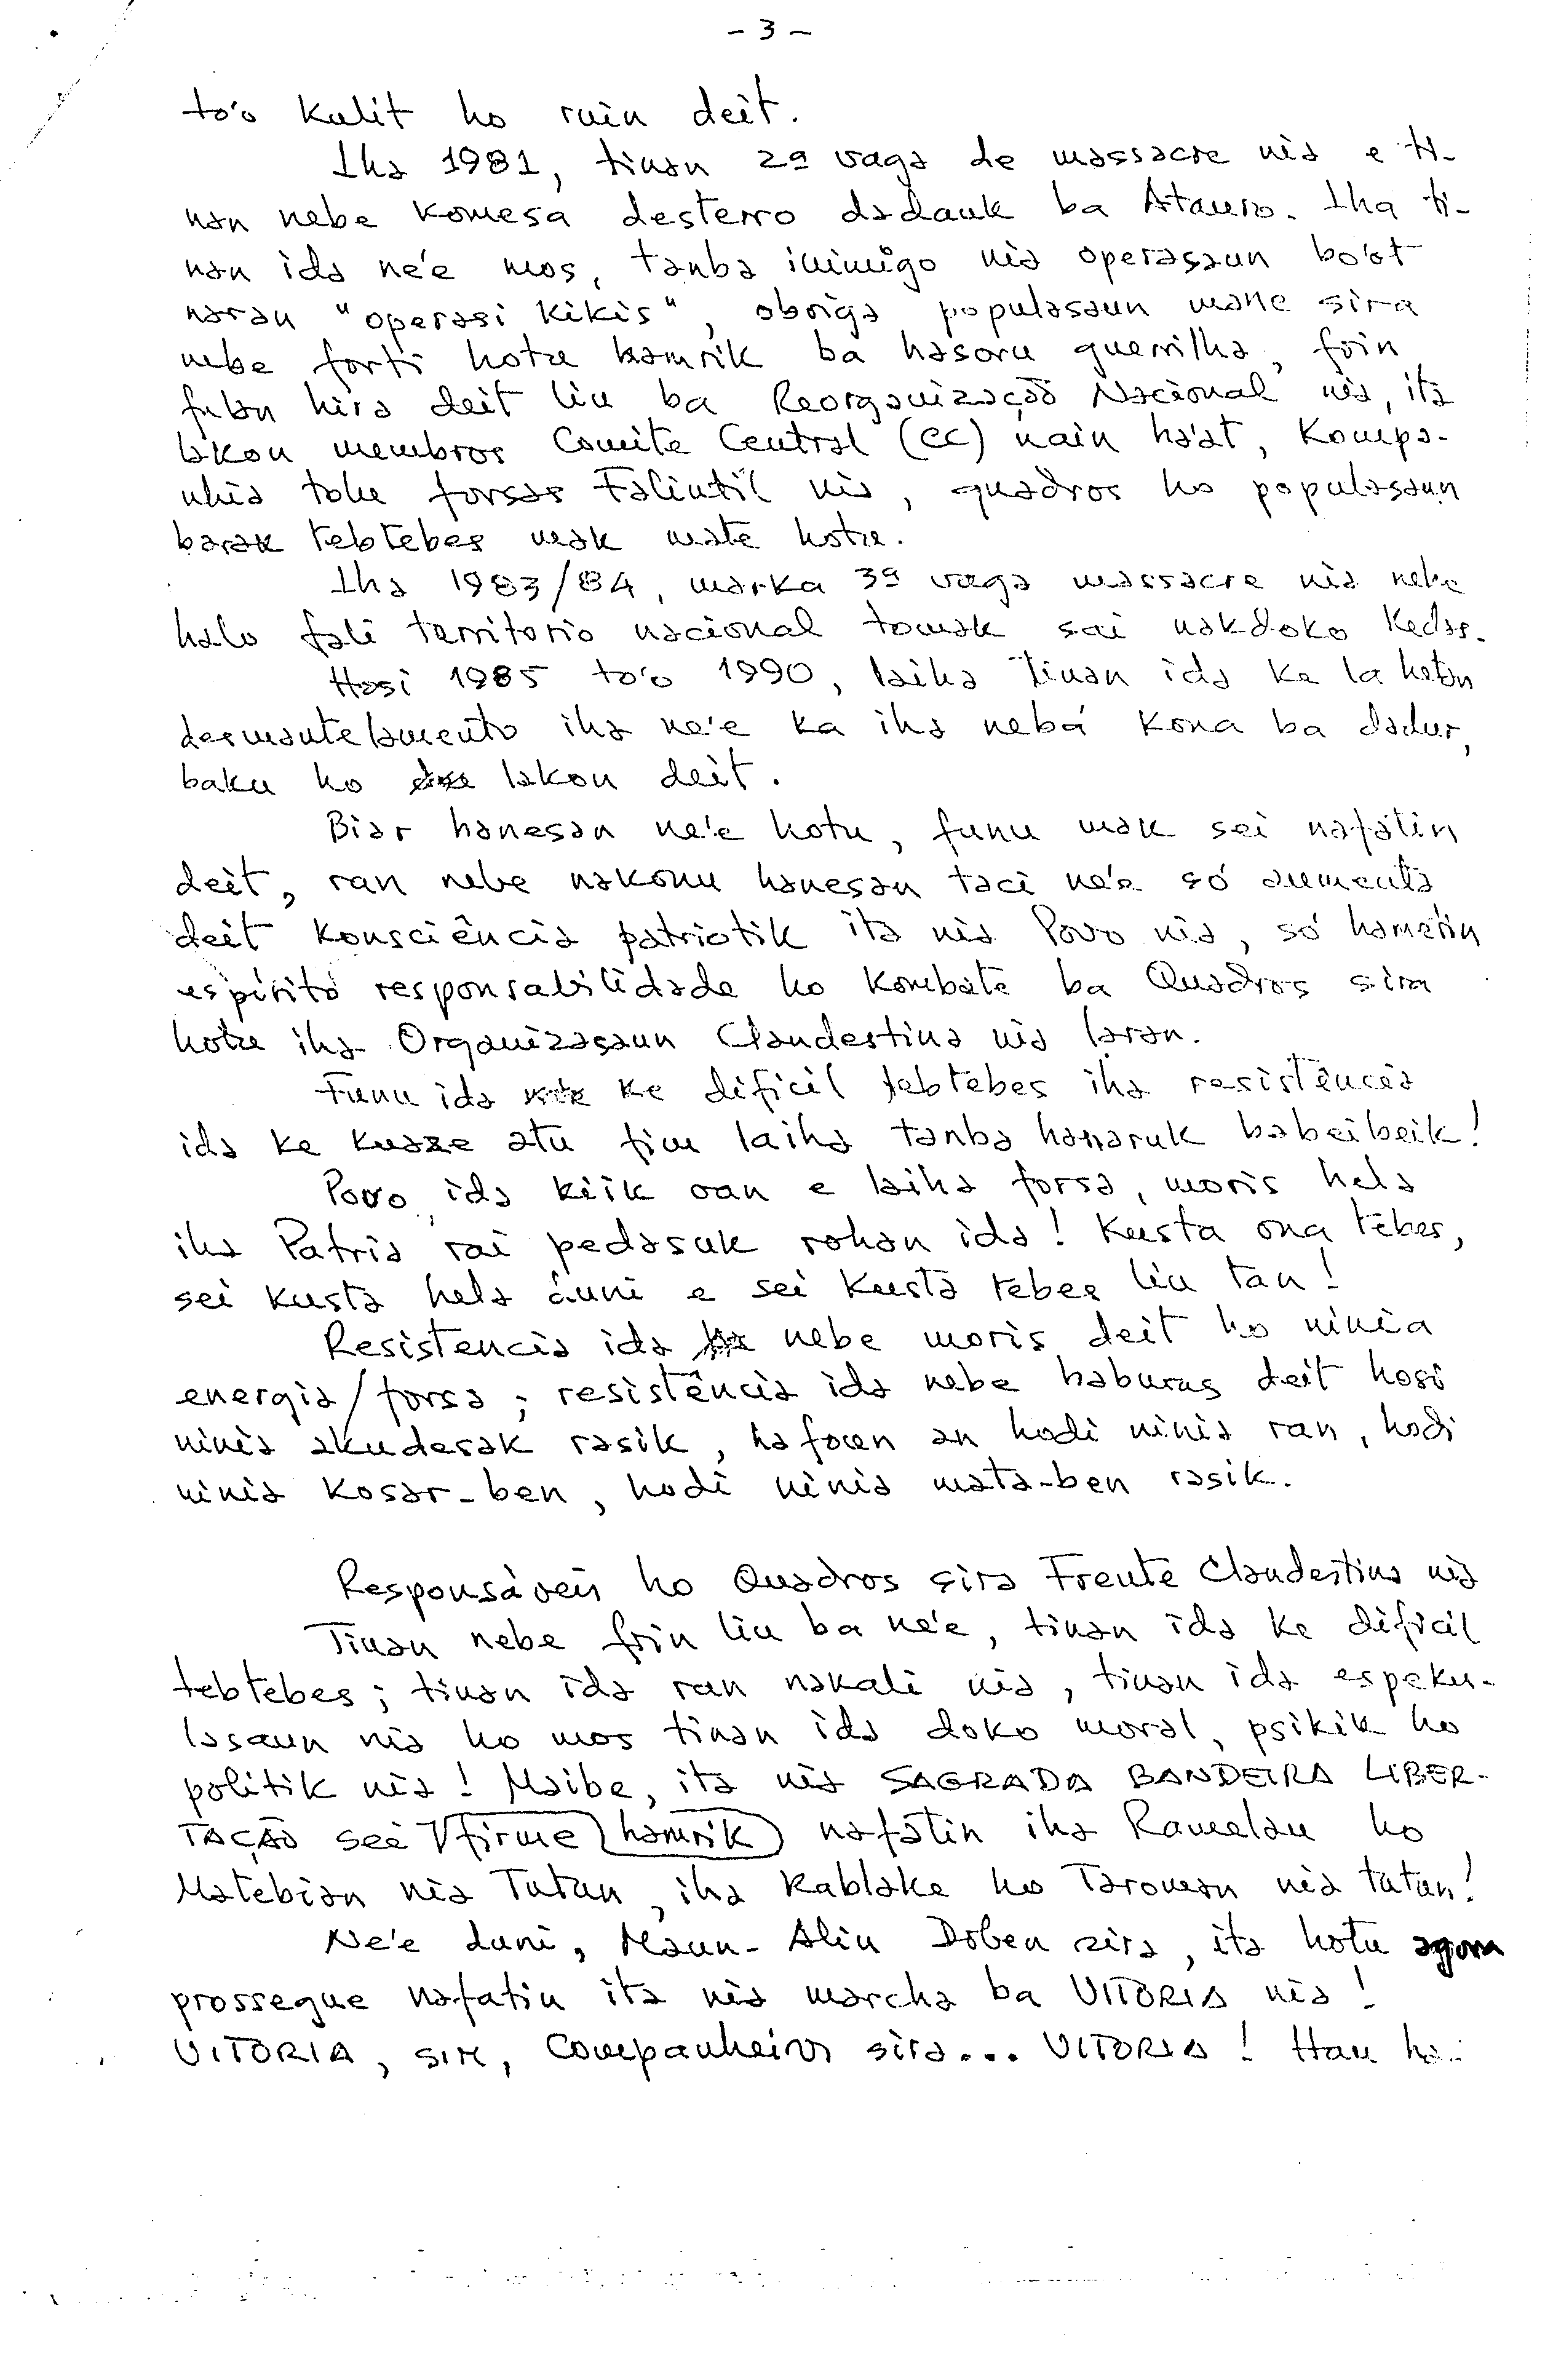 - 3 -
to'o kulit ho ruin deit.
Iha 1981, tinan 2ª vaga de massacre nia e ti-
nan nebe komesa desterro dadauk ba Atauro. Iha ti-
nan ida ne'e mos, tanba inimigo nia operasaun bo'ot
naran "operasi kikis", obriga populasaun mane sira
nebe forti hotu hamrik ba hasoru guerrilha, foin
fulan hira deit liu ba Reorganização Nacional nia, ita
lakon membros Comite Central (CC) nain ha'at, Kompa-
nhia tolu forsas Falintil nia, quadros ho populasaun
barak tebtebes mak mate hotu.
Iha 1983/84, marka 3ª vaga massacre nia nebe
halo fali territorio nacional tomak sai nakdoko kedas.
Hosi 1985 to'o 1990, laiha tinan ida ke la hetan
desmantelamento iha ne'e ka iha nebá kona ba dadur,
baku ho lakon deit.
Biar hanesan ne'e hotu, funu mak sei nafatin
deit, ran nebe nakonu hanesan taci ne'e só aumenta
deit konsciência patriotik ita nia Povo nia, só hametin
espirito responsabilidade ho kombate ba Quadros sira
hotu iha Organizasaun Clandestina nia laran.
Funu ida ke dificil tebtebes iha resistência
ida ke kuaze atu fim laiha tanba hanaruk babeibeik!
Povo ida kiik oan e laiha forsa, moris hela
iha Patria rai pedasuk rohan ida! Kusta ona tebes,
sei kusta hela áuni e sei kusta tebes liu tan!
Resistencia ida nebe moris deit ho ninia
energia/forsa; resistência ida nebe haburas deit hosi
ninia akudesak rasik, hafoun an hodi ninia ran, hodi
ninia kosar-ben, hodi ninia mata-ben rasik.
Responsáveis ho Quadros sira Frente Clandestina nia
Tinan nebe foin liu ba ne'e, tinan ida ke dificil
tebtebes; tinan ida ran nakali nia, tinan ida espeku-
lasaun nia ho mos tinan ida doko moral, psikik ho
politik nia! Maibe, ita nia SAGRADA BANDEIRA LIBER-
TAÇÃO sei firme hamrik nafatin iha Ramelau ho
Matebian nia Tutun, iha Kablake ho Taroman nia tutun!
Ne'e duni, Maun-Alin Doben sira, ita hotu agora
prossegue nafatin ita nia marcha ba VITORIA nia!
VITORIA, SIM, Companheiros sira... VITORIA! Hau ha-